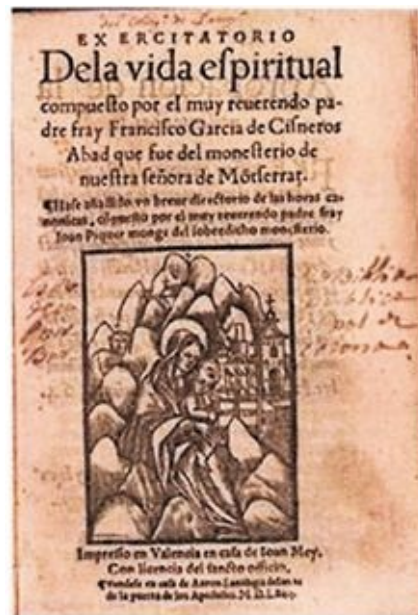 EXERCITATORIO
Dela vida eſpiritual
compueſto por el muy reuerendo pa-
dre fray Franciſco Garcia de Ciſneros
Abad que fue del moneſterio de
nueſtra ſeñora de Mōtſerrat.
¶Haſe añadido vn breue directorio de las horas ca-
nonicas, cōpueſto por el muy reuerendo padre fray
Ioan Piquer monge del ſobredicho moneſterio.
Impreſſo en Valencia en caſa de Ioan Mey.
Con licencia del ſancto officio.
¶Vendeſe en caſa de
de la puerta de los Apoſtoles. M. D. L.